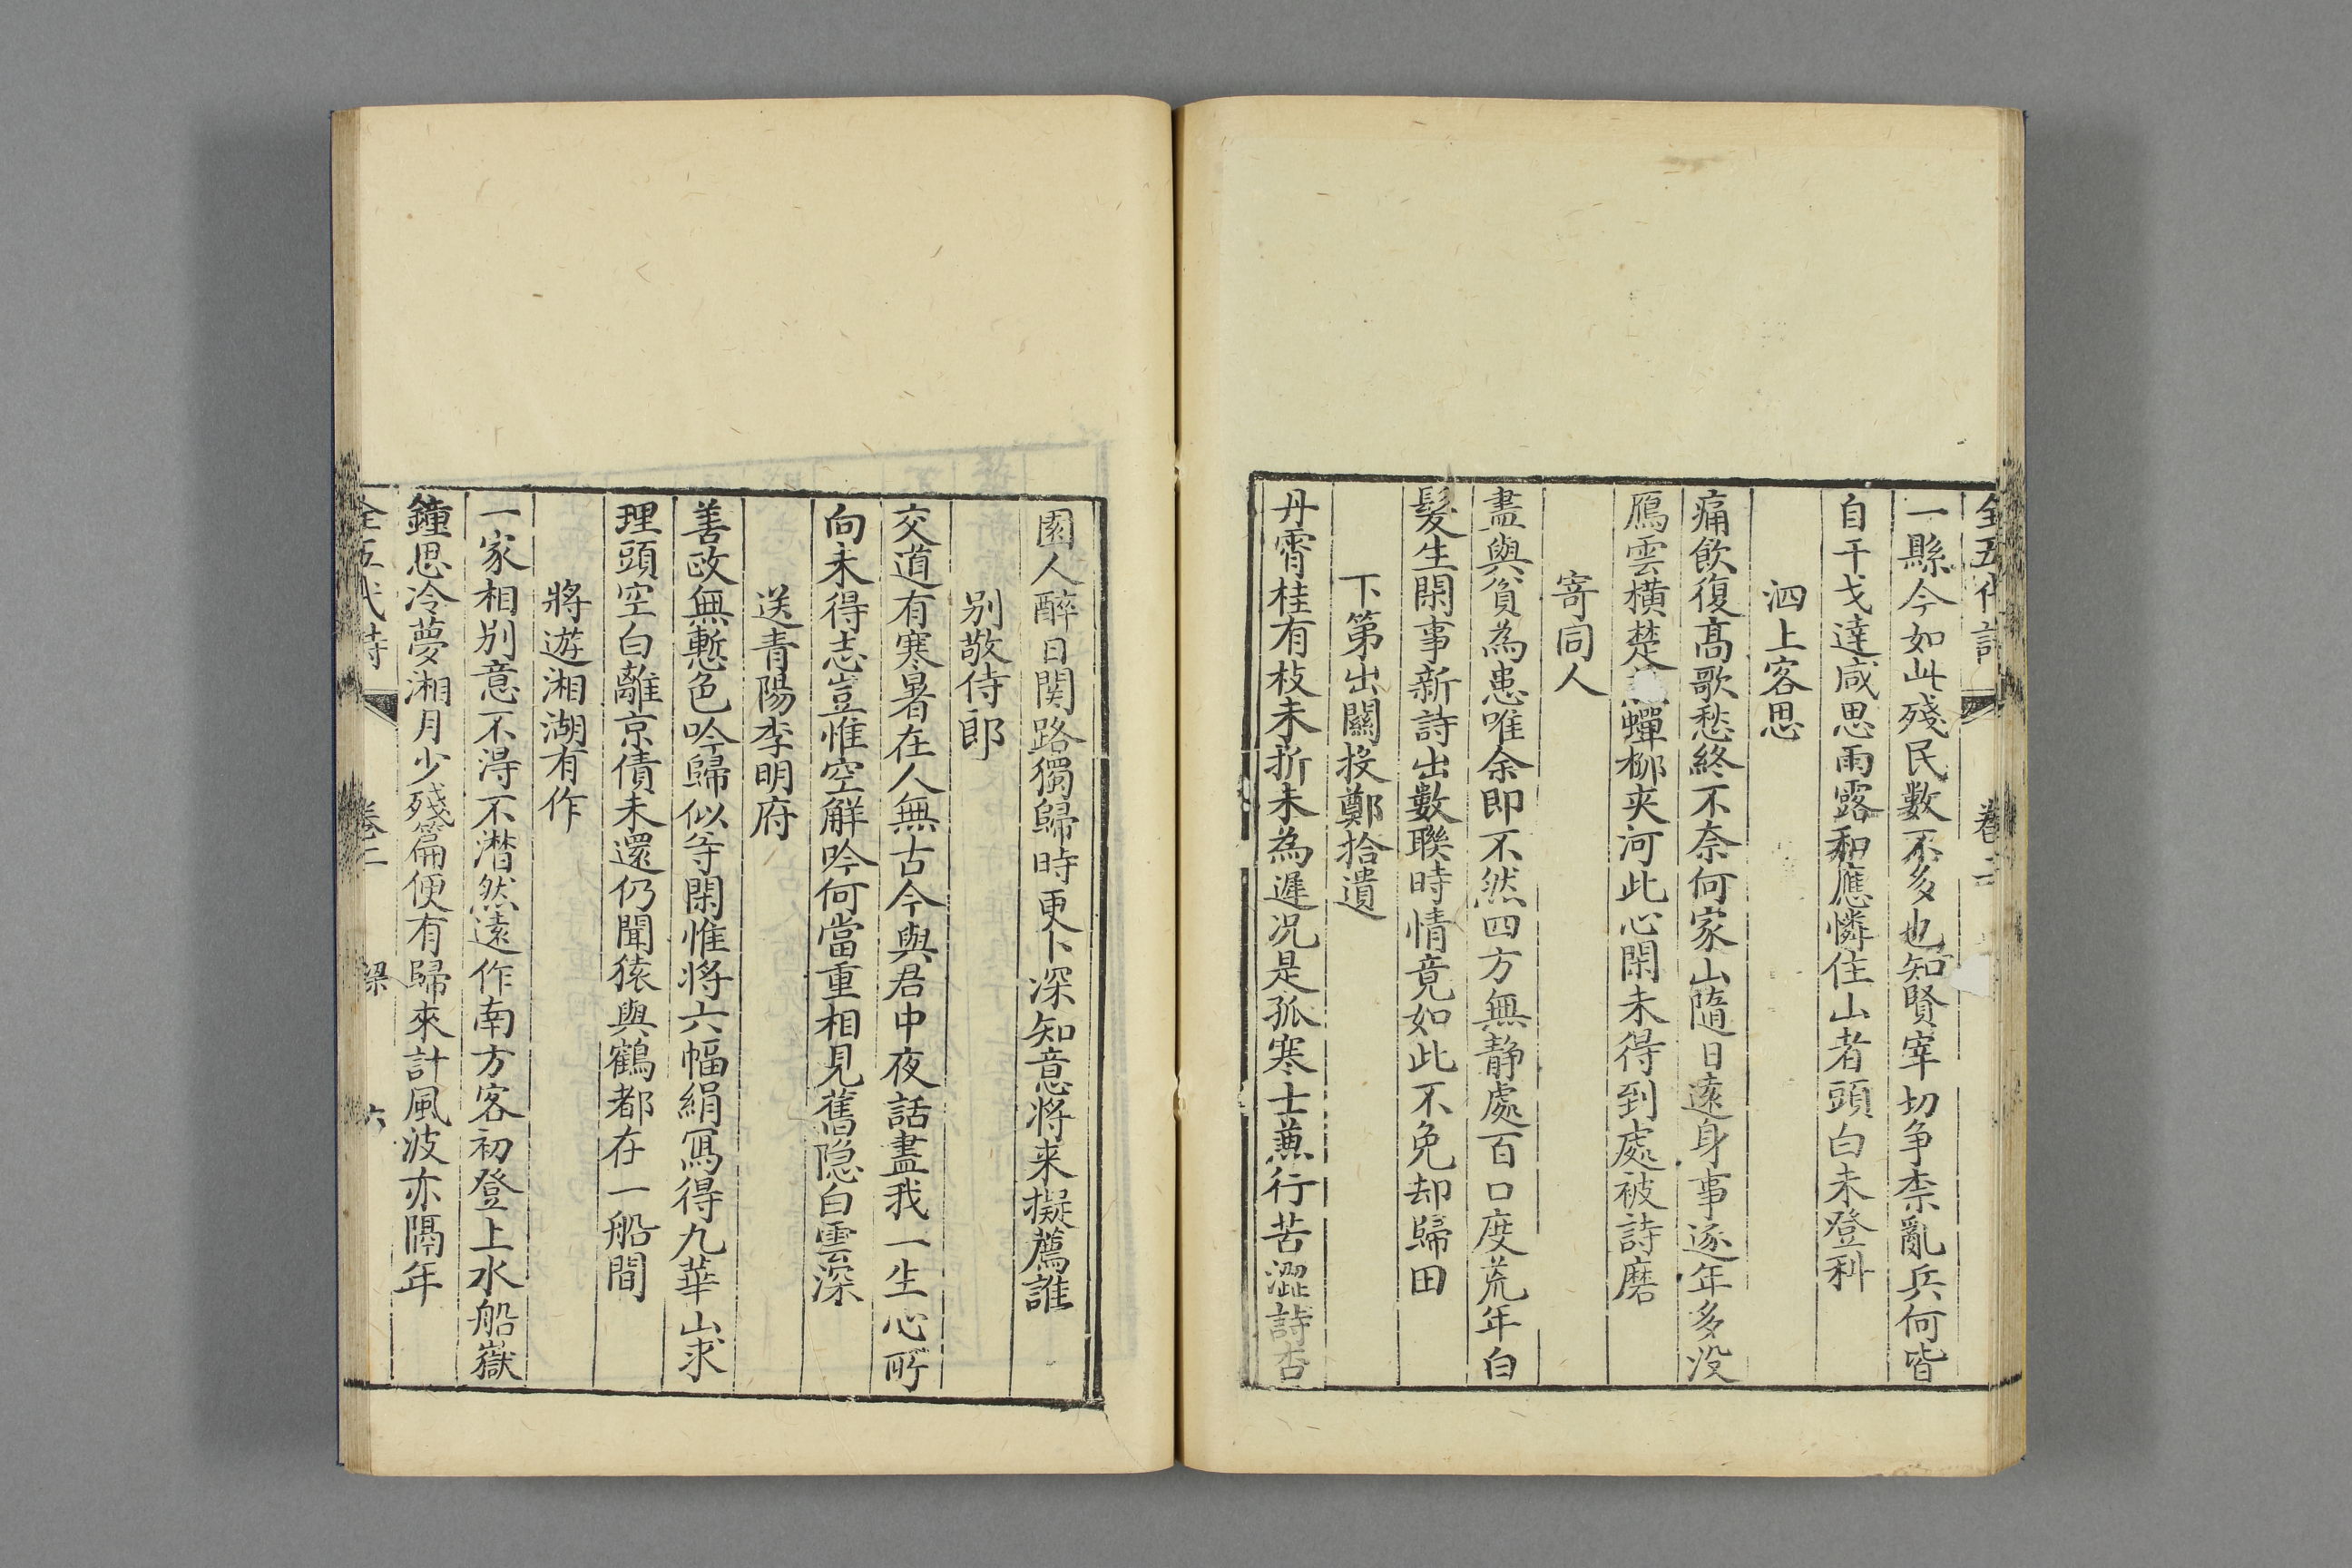 全五代詩 卷二
一縣今如此殘民數不多也知賢宰切争柰亂兵何皆
自干戈達咸思雨露和應憐住山者頭白未登科
泗上客思
痛飲復髙歌愁終不奈何家山隨日遠身事逐年多没
鴈雲橫楚蟬柳夾河此心閑未得到處被詩磨
寄同人
盡與貧為患唯余即不然四方無静處百口度荒年白
髮生閑事新詩出數聯時情竟如此不免却歸田
下第出關投鄭拾遺
丹霄桂有枝未折未為遲况是孤寒士兼行苦澀詩杏
園人醉日関路獨歸時更卜深知意将来擬薦誰
别敬侍郎
交道有寒暑在人無古今與君中夜話盡我一生心所
向未得志豈惟空解吟何當重相見舊隐白雲深
送青陽李明府
善政無慙色吟歸似等閑惟将六幅絹冩得九華山求
理頭空白離京債未還仍聞猿與鶴都在一船間
將遊湘湖有作
一家相别意不得不潜然遠作南方客初登上水船嶽
鐘思冷夢湘月少殘篇便有歸來計風波亦隔年
全五代詩 卷二 梁 六